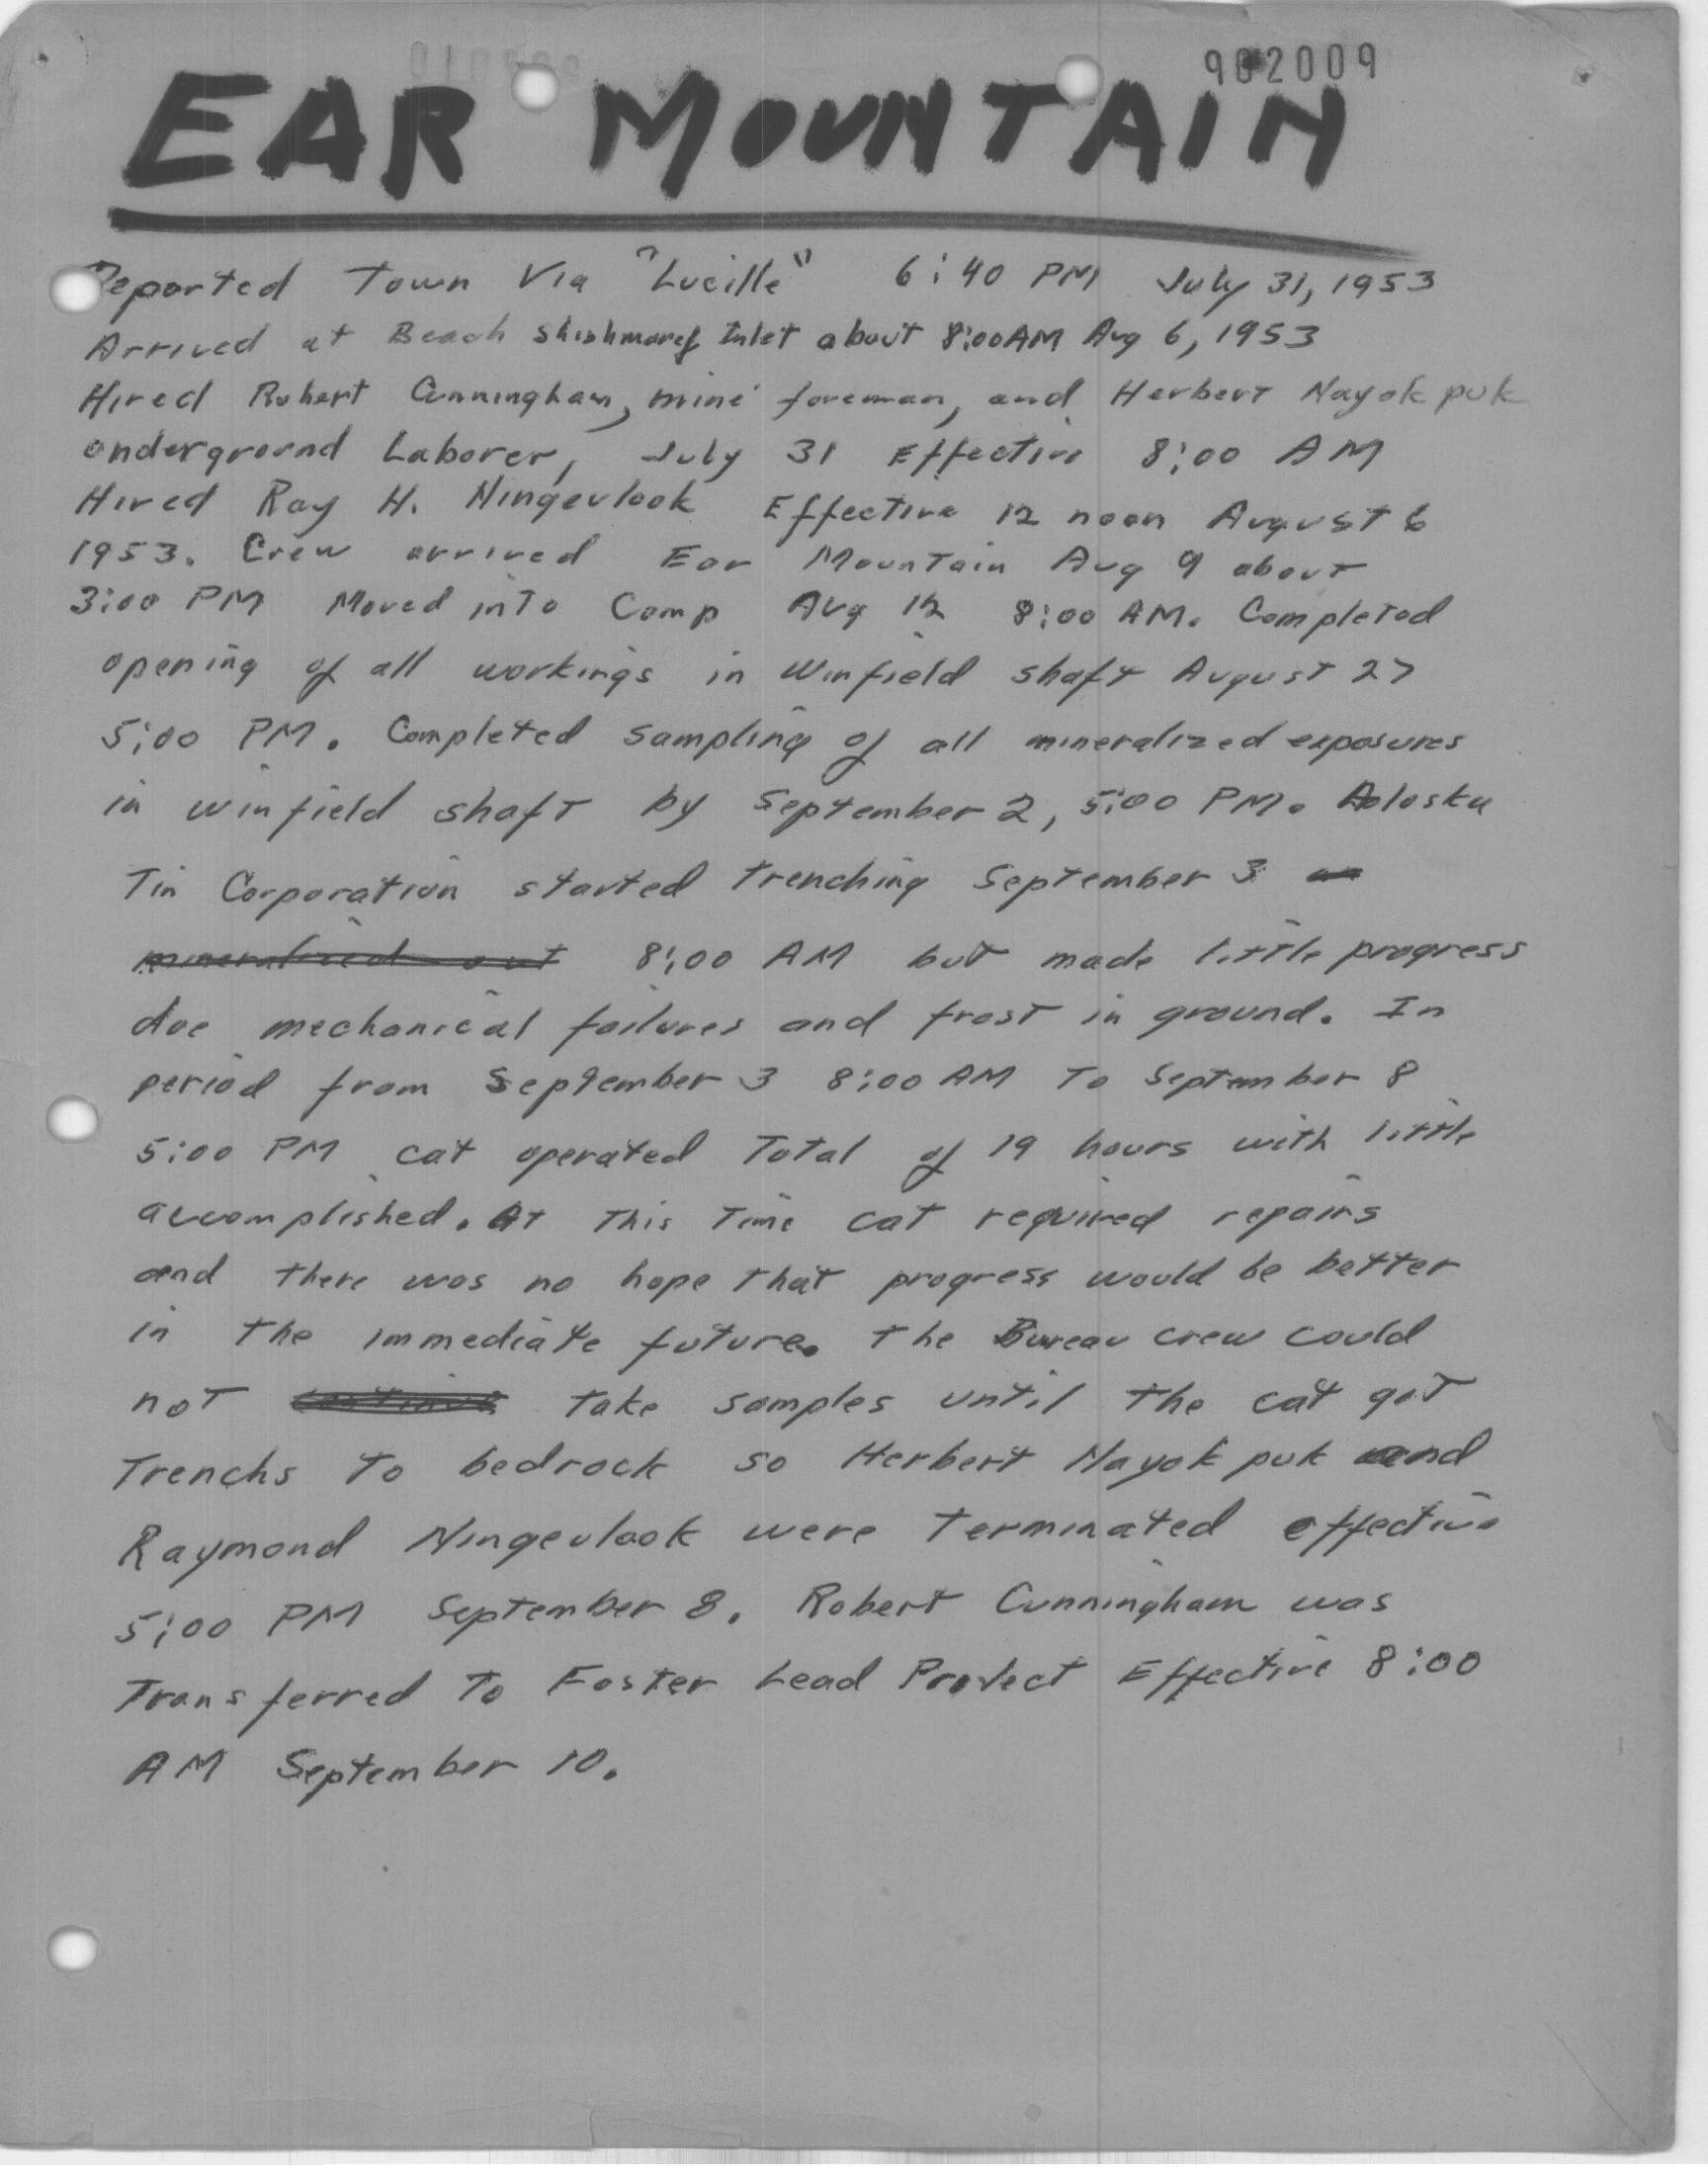 902009
EAR MOUNTAIN
Deported Town Via "Lucille" 6:40 PM July 31, 1953
Arrived at Beach Shishmaref Inlet about 8:00AM Aug 6, 1953
Hired Robert Cunningham, mine foreman, and Herbert Nayokpuk
underground Laborer, July 31 Effective 8:00 AM
Hired Ray H. Ningeulook Effective 12 noon August 6
1953. Crew arrived Ear Mountain Aug 9 about
3:00 PM Moved into Camp Aug 12 8:00 AM. Completed
opening of all workings in Winfield shaft August 27
5:00 PM. Completed sampling of all mineralized exposures
in winfield shaft by September 2, 5:00 PM. Alaska
Tin Corporation started trenching September 3
mineralized out 8:00 AM but made little progress
due mechanical failures and frost in ground. In
period from September 3 8:00 AM to September 8
5:00 PM cat operated Total of 19 hours with little
accomplished. At this time cat required repairs
and there was no hope that progress would be better
in the immediate future. The Bureau crew could
not continue take samples until the cat got
Trenchs to bedrock so Herbert Nayokpuk and
Raymond Ningeulook were terminated effective
5:00 PM September 8. Robert Cunningham was
Transferred to Foster Lead Proiect Effective 8:00
AM September 10.